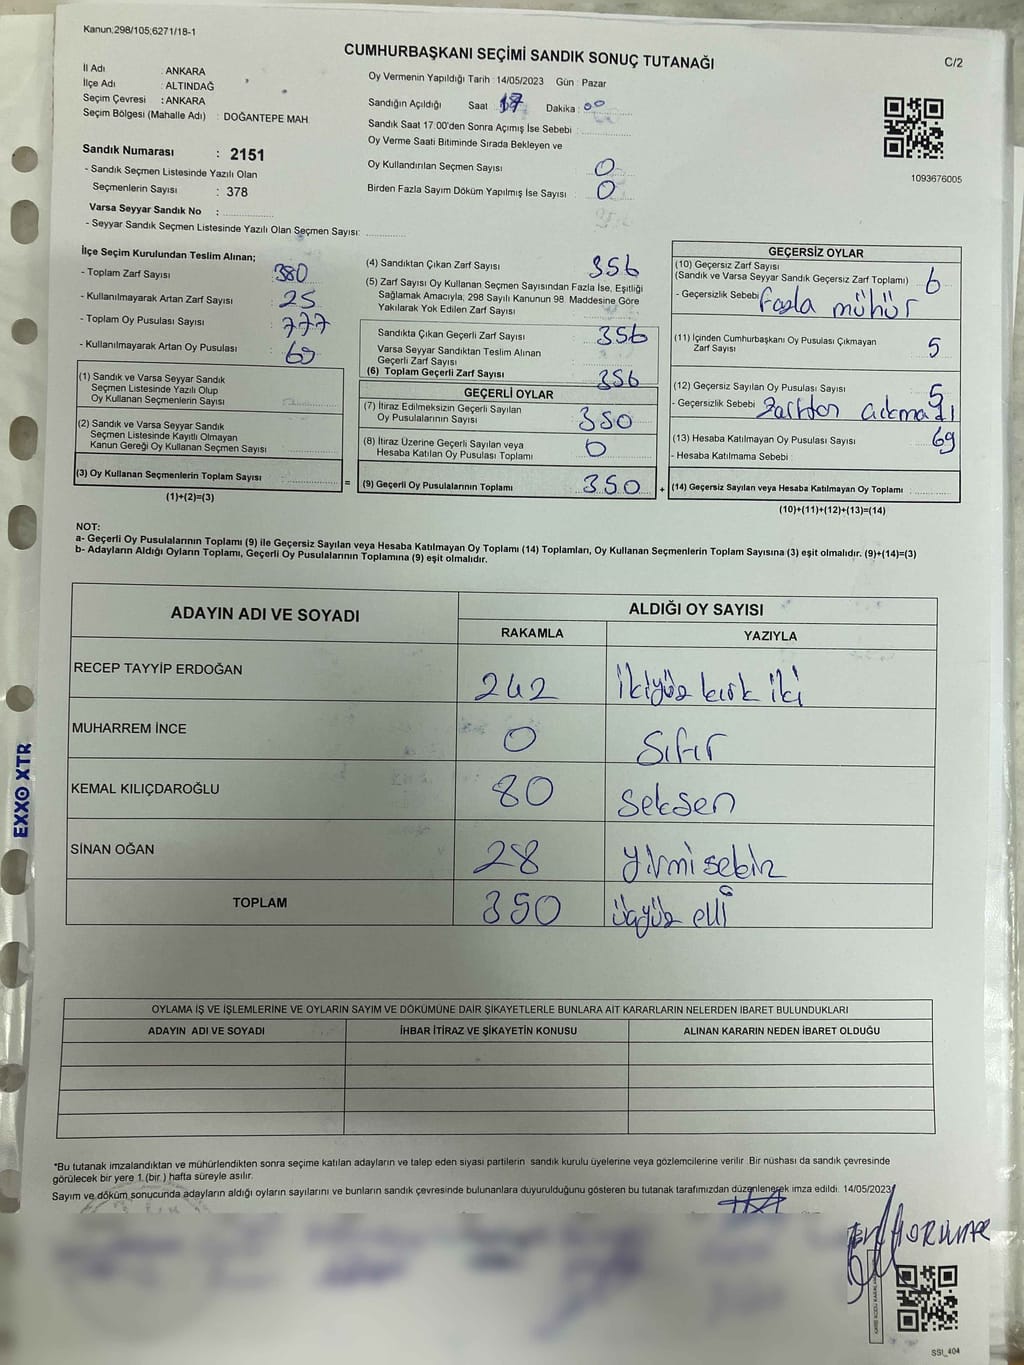 Kanun:298/105;6271/18-1
CUMHURBAŞKANI SEÇİMİ SANDIK SONUÇ TUTANAĞI
C/2
İl Adı : ANKARA
İlçe Adı : ALTINDAĞ
Seçim Çevresi : ANKARA
Seçim Bölgesi (Mahalle Adı) : DOĞANTEPE MAH
Sandık Numarası : 2151
- Sandık Seçmen Listesinde Yazılı Olan
Seçmenlerin Sayısı : 378
Varsa Seyyar Sandık No :
- Seyyar Sandık Seçmen Listesinde Yazılı Olan Seçmen Sayısı:
Oy Vermenin Yapıldığı Tarih : 14/05/2023 Gün : Pazar
Sandığın Açıldığı Saat 17 Dakika : 00
Sandık Saat 17:00'den Sonra Açımış İse Sebebi :
Oy Verme Saati Bitiminde Sırada Bekleyen ve
Oy Kullandırılan Seçmen Sayısı 0
Birden Fazla Sayım Döküm Yapılmış İse Sayısı 0
1093676005
İlçe Seçim Kurulundan Teslim Alınan;
- Toplam Zarf Sayısı 380
- Kullanılmayarak Artan Zarf Sayısı 25
- Toplam Oy Pusulası Sayısı 777
- Kullanılmayarak Artan Oy Pusulası 69
(1) Sandık ve Varsa Seyyar Sandık
Seçmen Listesinde Yazılı Olup
Oy Kullanan Seçmenlerin Sayısı
(2) Sandık ve Varsa Seyyar Sandık
Seçmen Listesinde Kayıtlı Olmayan
Kanun Gereği Oy Kullanan Seçmen Sayısı
(3) Oy Kullanan Seçmenlerin Toplam Sayısı
=
(1)+(2)=(3)
(4) Sandıktan Çıkan Zarf Sayısı 356
(5) Zarf Sayısı Oy Kullanan Seçmen Sayısından Fazla İse, Eşitliği
Sağlamak Amacıyla, 298 Sayılı Kanunun 98. Maddesine Göre
Yakılarak Yok Edilen Zarf Sayısı
Sandıkta Çıkan Geçerli Zarf Sayısı 356
Varsa Seyyar Sandıktan Teslim Alınan
Geçerli Zarf Sayısı
(6) Toplam Geçerli Zarf Sayısı 356
GEÇERLİ OYLAR
(7) İtiraz Edilmeksizin Geçerli Sayılan
Oy Pusulalarının Sayısı 350
(8) İtiraz Üzerine Geçerli Sayılan veya
Hesaba Katılan Oy Pusulası Toplamı 0
(9) Geçerli Oy Pusulalarının Toplamı 350
+
GEÇERSİZ OYLAR
(10) Geçersiz Zarf Sayısı
(Sandık ve Varsa Seyyar Sandık Geçersiz Zarf Toplamı) 6
- Geçersizlik Sebebi fazla mühür
(11) İçinden Cumhurbaşkanı Oy Pusulası Çıkmayan
Zarf Sayısı 5
(12) Geçersiz Sayılan Oy Pusulası Sayısı 5
- Geçersizlik Sebebi
(13) Hesaba Katılmayan Oy Pusulası Sayısı 69
- Hesaba Katılmama Sebebi
(14) Geçersiz Sayılan veya Hesaba Katılmayan Oy Toplamı
(10)+(11)+(12)+(13)=(14)
NOT:
a- Geçerli Oy Pusulalarının Toplamı (9) ile Geçersiz Sayılan veya Hesaba Katılmayan Oy Toplamı (14) Toplamları, Oy Kullanan Seçmenlerin Toplam Sayısına (3) eşit olmalıdır. (9)+(14)=(3)
b- Adayların Aldığı Oyların Toplamı, Geçerli Oy Pusulalarının Toplamına (9) eşit olmalıdır.
ADAYIN ADI VE SOYADI ALDIĞI OY SAYISI
RAKAMLA YAZIYLA
RECEP TAYYİP ERDOĞAN 242 ikiyüz kırk iki
MUHARREM İNCE 0 Sıfır
KEMAL KILIÇDAROĞLU 80 seksen
SİNAN OĞAN 28 yirmi sekiz
TOPLAM 350 üçyüz elli
OYLAMA İŞ VE İŞLEMLERİNE VE OYLARIN SAYIM VE DÖKÜMÜNE DAİR ŞİKAYETLERLE BUNLARA AİT KARARLARIN NELERDEN İBARET BULUNDUKLARI
ADAYIN ADI VE SOYADI İHBAR İTİRAZ VE ŞİKAYETİN KONUSU ALINAN KARARIN NEDEN İBARET OLDUĞU
*Bu tutanak imzalandıktan ve mühürlendikten sonra seçime katılan adayların ve talep eden siyasi partilerin sandık kurulu üyelerine veya gözlemcilerine verilir. Bir nüshası da sandık çevresinde
görülecek bir yere 1.(bir.) hafta süreyle asılır.
Sayım ve döküm sonucunda adayların aldığı oyların sayılarını ve bunların sandık çevresinde bulunanlara duyurulduğunu gösteren bu tutanak tarafımızdan düzenlenerek imza edildi. 14/05/2023
SSI_404
EXXO XTR